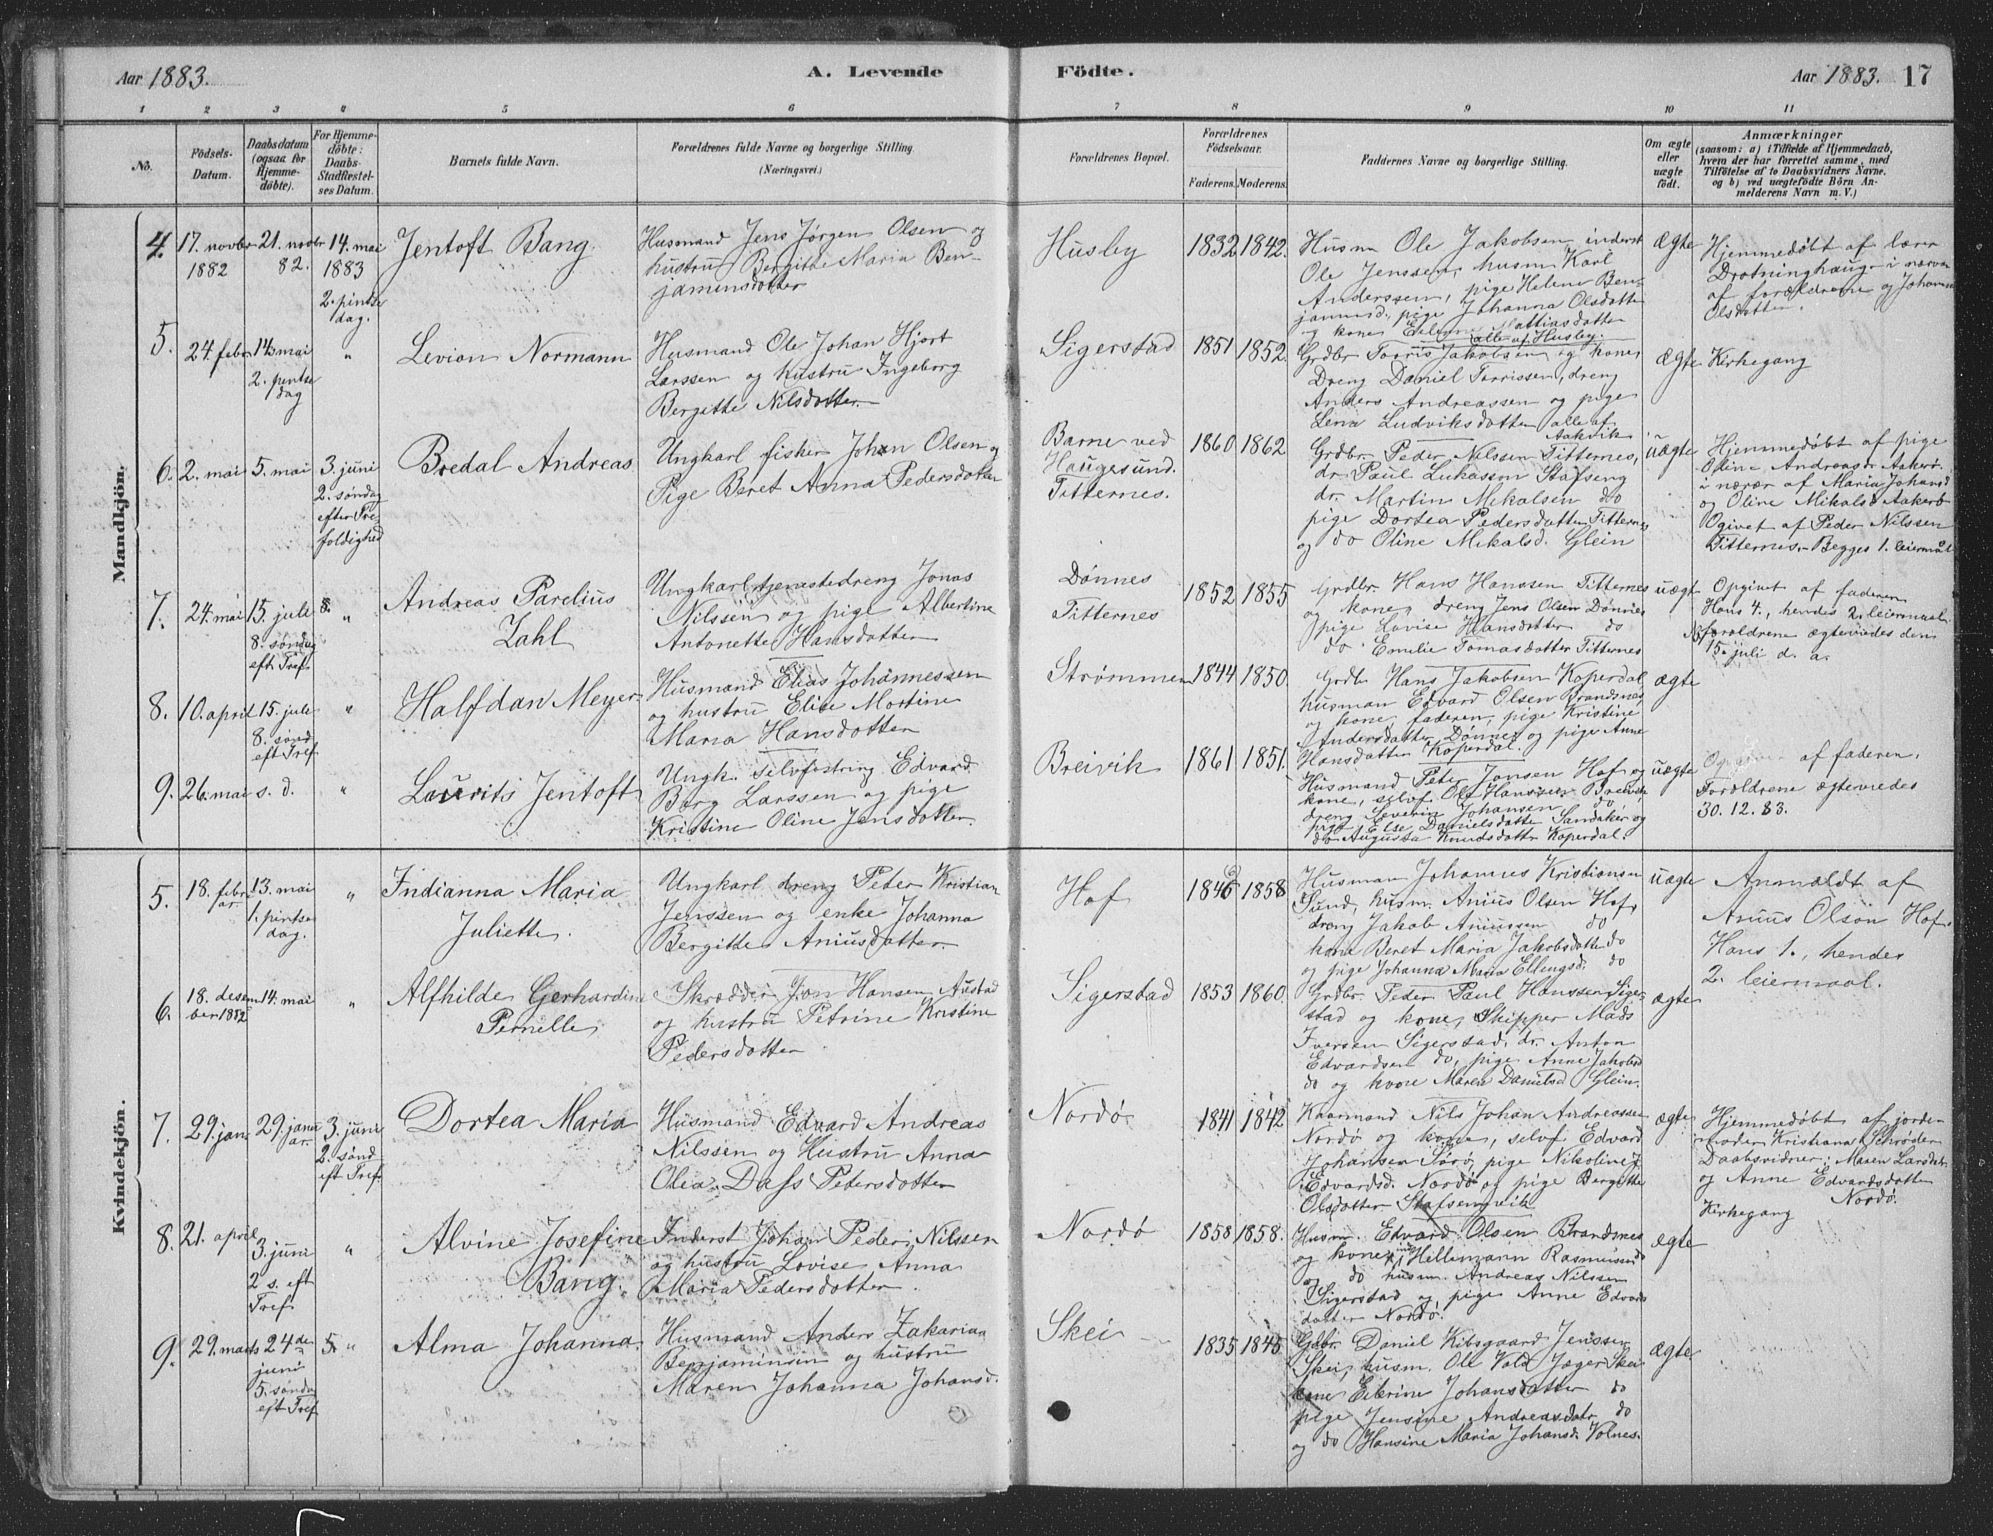 Aar 1883.
A. Levende
Födte.
Aar 1883. 17
1 2 3 4 5 6 7 8 9 10 11
No.
Födsels-Datum.
Daabsdatum (ogsaa for Hjemme-döbte).
For Hjemme-döbte: Daabs-Stadfæstel-ses Datum.
Barnets fulde Navn.
Forældrenes fulde Navne og borgerlige Stilling (Næringsvei.)
Forældrenes Bopæl.
Forældrenes Födselsaar.
Faderens. Moderens.
Faddernes Navne og borgerlige Stilling.
Om ægte eller uægte födt.
Anmærkninger
(saasom: a) i Tilfælde af Hjemmedaab, hvem der har forrettet samme, med Tilföielse af to Daabsvidners Navne. og b) ved uægtefödte Börn An-melderens Navn m. V.)
Mandkjön.
4. 17. novbr 1882
21. novbr 82.
14. mai 1883 2. pintse dag.
Jentoft Bang.
Husmand Jens Jørgen Olsen og
hustru Bergitte Maria Ben-
jaminsdatter
Husby
1832 1842.
Husm Ole Jakobsen, inderst
Ole Jenssen, husm Karl
Anderssen, pige Helene Ben-
jaminsd, pige Johanna Olsdatter
og kone Mattiasdatter
alle af Husby.
Ægte
Hjemmedøbt af lærer
Drotninghaug i nærvær
af forældrene og Johanna
Olsdatter.
5. 24. febr
14. mai 2. pintse dag
"
Levion Normann
Husmand Ole Johan Hjort
Larssen og hustru Ingeborg
Bergitte Nilsdotter
Sigerstad
1851 1852.
Grdbr Torris Jakobsen og kone,
Dreng Daniel Torrissen, dreng
Anders Andreassen og pige
Lena Ludviksdotter alle af
Aakvik
Ægte
Kirkegang
6. 2. mai
5. mai
3. juni 2. søndag efter Tre-foldighed
Bredal Andreas
Ungkarl fisker Johan Olsen og
Pige Beret Anna Pedersdotter
Barne ved
Haugesund.
Titternes.
1860 1862
Grdbr. Peder Nilssen Titternes,
dr. Paul Lukassen Stafseng
dr. Martin Mikalsen do
pige Dortea Pedersdatter Titternes
og do Oline Mikalsd. Glein
uægte
Hjemmedøbt af pige
Oline Andreasd Aakerø.
i nærær af Maria Johansd
og Oline Mikalsd Aakerø
Ogivet af Peder Nilssen
Titternes. Begges 1. leiermål
7. 24. mai
15. jule 8. søndag eft Tref.
"
Andreas Parelius
Zahl
Ungkarl tjenstedreng Jonas
Nilssen og pige Albertine
Antonette Hansdotter
Dønnes
Titternes
1852 1855
Grdbr. Hans Hanssen Titternes
og kone, dreng Jens Olsen Dønnes
pige Lovise Hansdotter do
do Emilie Tomasdotter Titternes
uægt
Opgivet af faderen
Hans 4., hendes 2. leiermaal.
Foroldrene ægteviedes den
15. juli d. a.
8. 10. april
15. jule 8. sønd eft Tref
"
Halfdan Meyer.
Husmand Elias Johannessen
og hustru Elise Mortine
Maria Hansdotter
Strømmen
1844 1850.
Grdb Hans Jakobsen Koperdal
husman Edvard Olsen Brandsnes,
og kone, faderen, pige Kristine
Andersdatter Dønnes og pige Anne
Hansdatter Koperdal.
ægte
9. 26. mai
s. d.
"
Laurits Jentoft
Ungk. selvfostring Edvard
Borg Larssen og pige
Kristine Oline Jensdotter.
Breivik
1861 1851.
Husmand Peter Jonsen Hof og
kone, selvf. Ole Hanssen
dreng Severin Johansen do
pige Else Danielsdatter Sandaker og
do Augusta Knudsdatter Koperdal.
uægte
af faderen.
Foroldrene ægteviedes
30. 12. 83.
Kvindekjön.
5. 18. febr ar.
13. mai 1. pintse dag.
"
Indianna Maria
Juliette.
Ungkarl dreng Peter Kristian
Jenssen og enke Johanna
Bergitte Aniusdatter
Hof
1846 1858
Husman Johannes Kristiansen
Sund, husm. Anius Olsen Hof,
dreng Jakob Aniussen do
kone Beret Maria Jakobsdotter do
og pige Johanna Maria Ellingsd. do
uægte
Anmældt af
Anius Olsen Hof.
Hans 1., hendes
2. leiermaal.
6. 18. desem ber 1882
14. mai
"
Alfhilde Gerhardine
Pernille,
Skrædder Jon Hansen Austad
og hustru Petrine Kristine
Pedersdotter
Sigerstad
1853 1860.
Grdbr. Peder Paul Hanssen Siger-
stad og kone, Skipper Mads
Iversen Sigerstad, dr. Anton
Edvardsen do, pige Anne Jakobsd
do og kone Maren Danielsd Glein.
ægte
7. 29. jan.
29. janu ar.
3. juni 2. sønd eft Tref
Dortea Maria
Husmand Edvard Andreas
Nilssen og Hustru Anna
Olea Dass Petersdotter
Nordø
1841 1842
Kaarmand Nils Johan Andreassen
Nordø og kone, selvf Edvard
Johansen Sørø, pige Nikoline J.
Edvardsd. Nordø, og pige Bergitte
Olsdotter Stafsengvik
ægte
Hjemmedøbt af jorde-
moder Kristiana Schrøder
Daabsvidner: Maren Larsdotter
og Anne Edvardsdotter
Nordø.
Kirkegang
8. 21. april
3. juni 2 s. eft Tref.
"
Alvine Josefine
Bang.
Inderst Johan Peder Nilssen
og hustru Lovise Anna
Maria Pedersdotter.
Nordø
1858 1858.
Husm. Edvard Olsen Brandsnes
og kone, Hellesmann Rasmussen
og do husm. Andreas Nilssen
Sigerstad og pige Anne Edvards
dotter Nordø.
ægte
9. 29. marts
24de juni 5. sønda eft Tref
"
Alma Johanna
Husmand Anders Zakarias
Benjaminsen og hustru
Maren Johanna Johansd.
Skei
1835 1845
Gdbr. Daniel Kibsgaard Jenssen
Skei, husm. Ole Vold Jæger Skei
kone Elerine Johansdatter do
pige Jensine Andreasdatr do
og do Hansine Maria Johansd. Volnes.
ægte